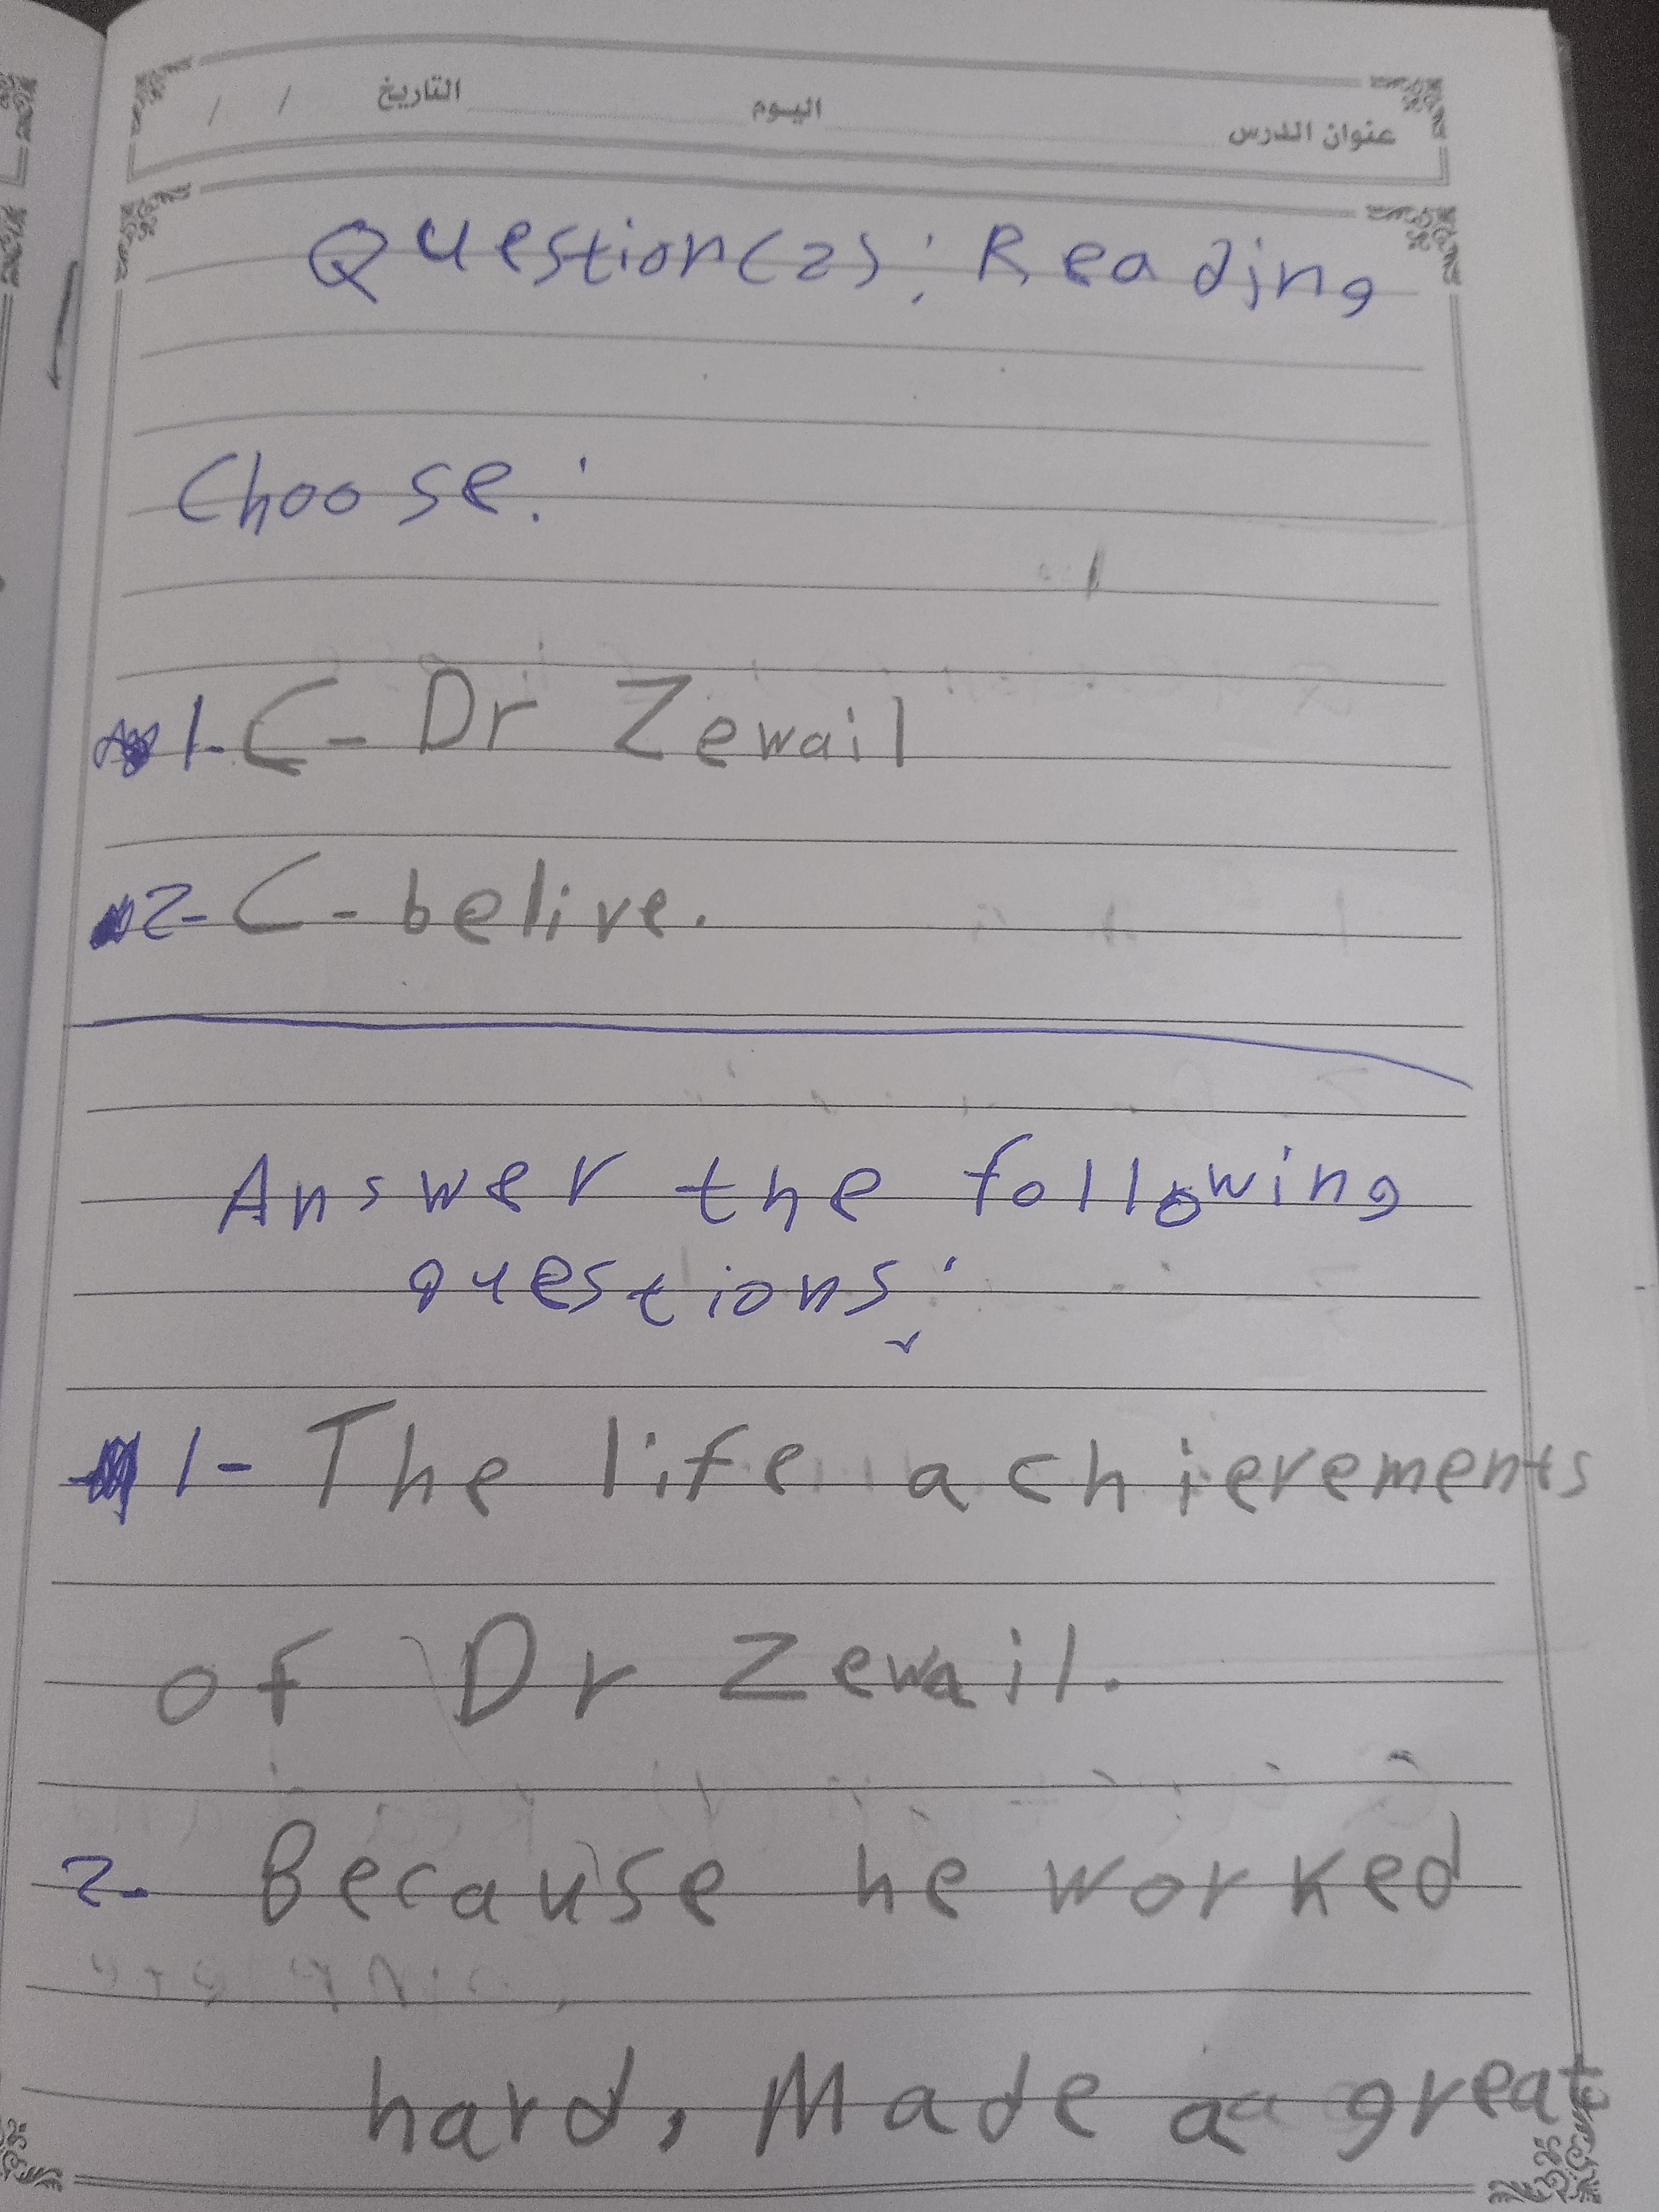 عنوان الدرس اليوم التاريخ / /
Question(2): Reading
Choose:
1- C- Dr Zewail
2- C- belive.
Answer the following
questions:
1- The life achievements
of Dr Zewail.
2- Because he worked
hard, Made a great